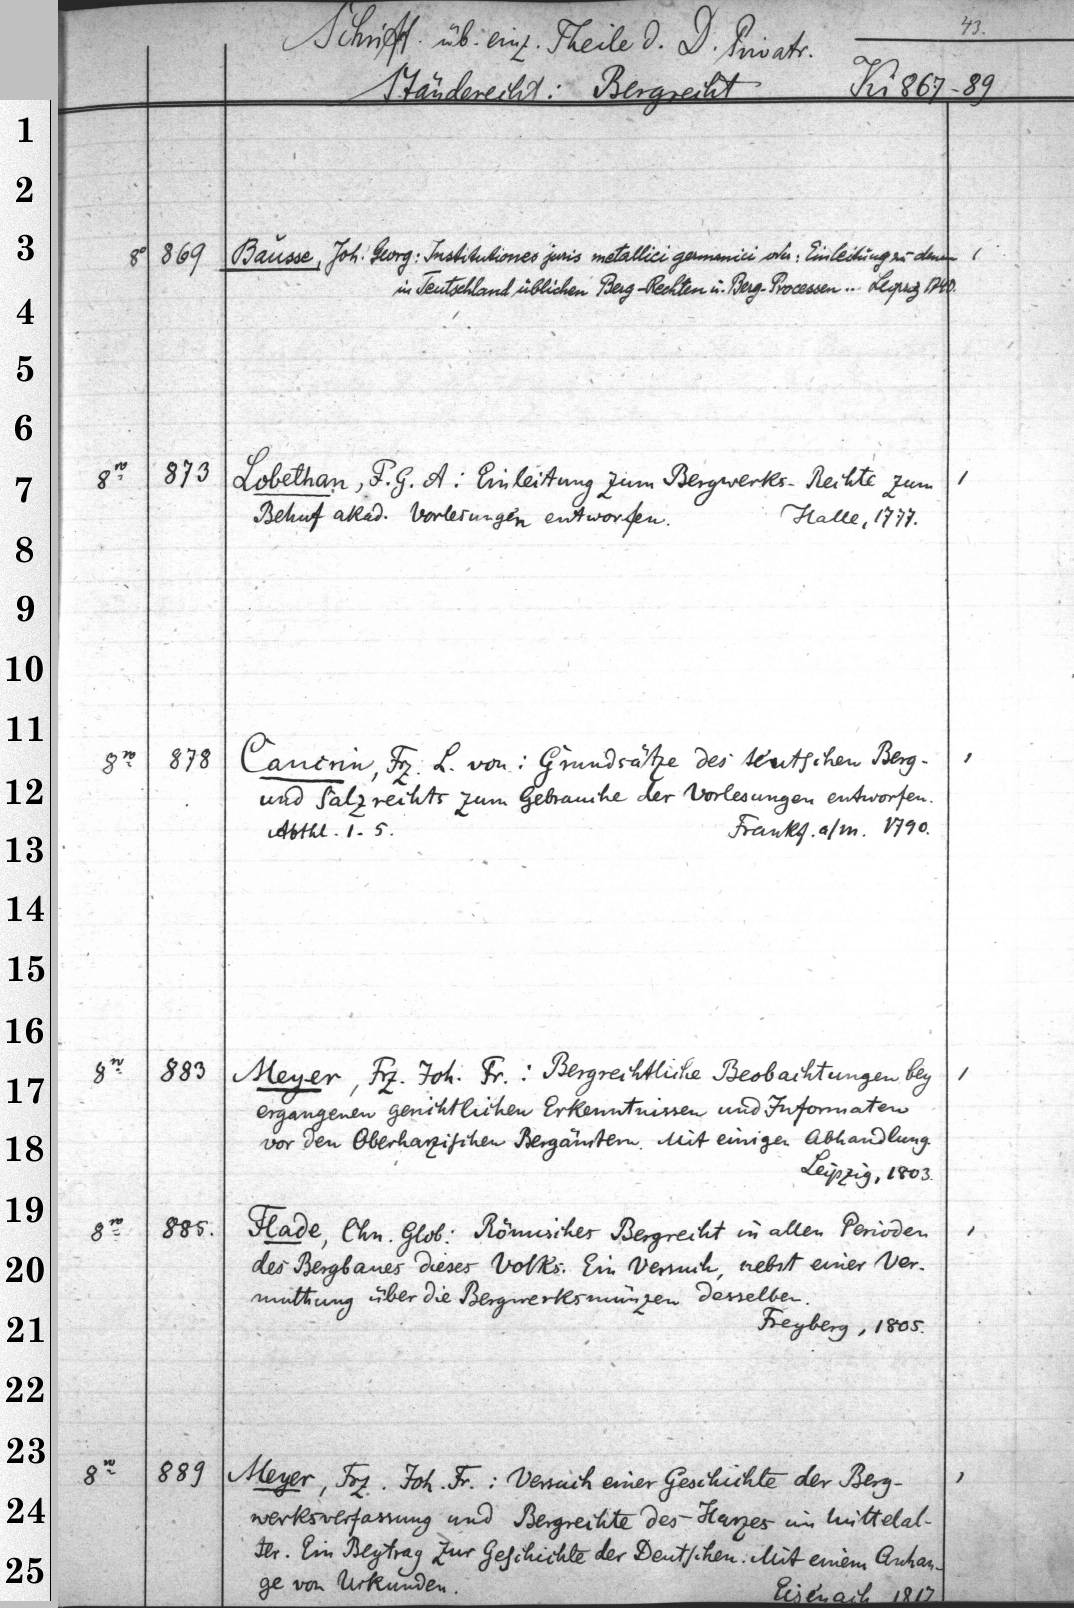 43.
Schrift. üb. einz. Theile d. D. Privatr.
Ständerecht: Bergrecht Ki 867-89
1
2
3
8° 869 Bausse, Joh. Georg: Institutiones juris metallici germanici oder: Einleitung zu denen 1
in Teutschland üblichen Berg-Rechten u. Berg-Processen... Leipzig 1740.
4
5
6
7
8vo 873 Lobethan, F. G. A: Einleitung zum Bergwerks-Rechte zum 1
Behuf akad. Vorlesungen entworfen. Halle, 1777.
8
9
10
11
8vo 878 Cancrin, Frz. L. von: Grundsätze des teutschen Berg- 1
12
und Salzrechts zum Gebrauche der Vorlesungen entworfen.
Abthl. 1-5. Frankf. a/m. 1790.
13
14
15
16
8vo 883 Meyer, Frz. Joh. Fr.: Bergrechtliche Beobachtungen bey 1
17
ergangenen gerichtlichen Erkenntnissen und Informaten
vor den Oberharzischen Bergämtern. Mit einigen Abhandlung
18
Leipzig, 1803.
19
8vo 885. Flade, Chn. Glob: Römisches Bergrecht in allen Perioden 1
20
des Bergbaues dieses Volks. Ein Versuch, nebst einer Ver-
muthung über die Bergwerksmünzen desselben.
21
Freyberg, 1805.
22
23
8vo 889 Meyer, Frz. Joh. Fr.: Versuch einer Geschichte der Berg- 1
24
werksverfassung und Bergrechte des Harzes im Mittelal-
ter. Ein Beytrag zur Geschichte der Deutschen. Mit einem Anhan-
25
ge von Urkunden. Eisenach 1817